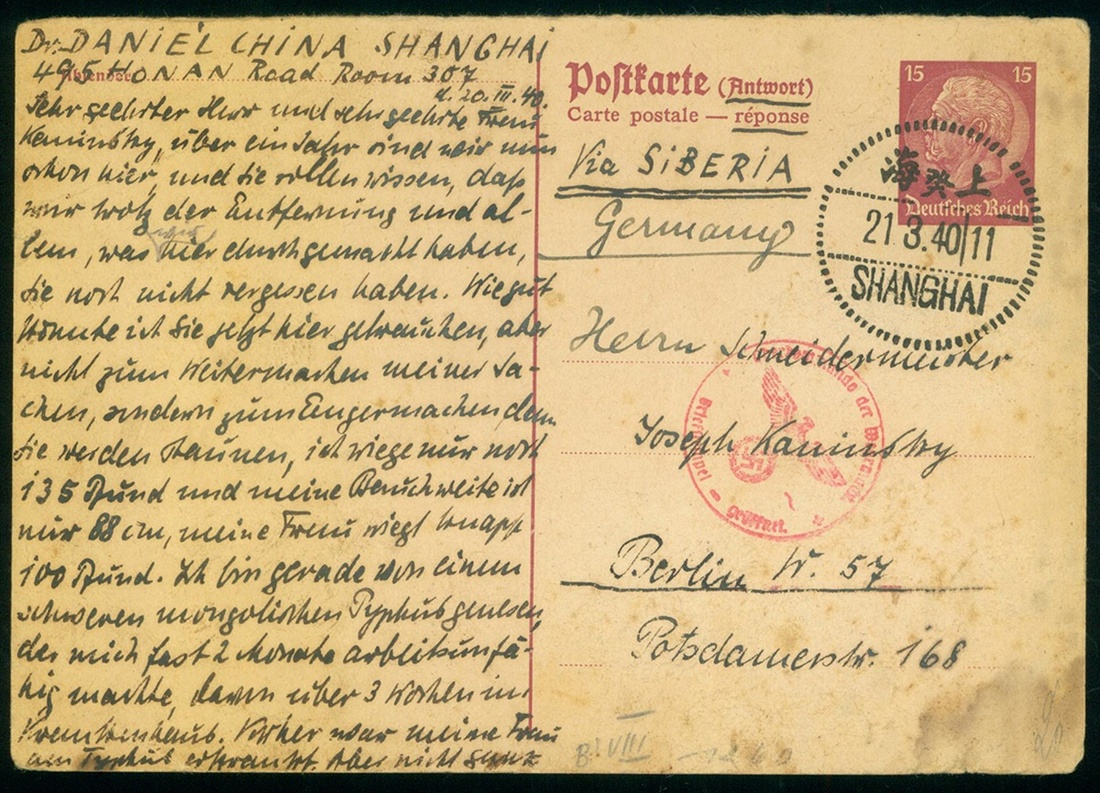 Dr. DANIEL CHINA SHANGHAI
Absender:
495 HONAN Road Room 307
d. 20. III. 40.
Sehr geehrter Herr und sehr geehrte Frau
Kaminsky, über ein Jahr sind wir nun
schon hier, und Sie sollen wissen, daß
wir trotz der Entfernung und al-
lem, was wir hier durchgemacht haben,
Sie noch nicht vergessen haben. Wie gut
könnte ich Sie jetzt hier gebrauchen, aber
nicht zum Weitermachen meiner Sa-
chen, sondern zum Engermachen denn
Sie werden staunen, ich wiege nur noch
135 Pfund und meine Bauchweite ist
nur 88 cm, meine Frau wiegt knapp
100 Pfund. Ich bin gerade von einem
schweren mongolischen Typhus genesen,
der mich fast 2 Monate arbeitsunfä-
hig machte, davon über 3 Wochen im
Krankenhaus. Vorher war meine Frau
an Typhus erkrankt. Aber nicht ganz
Postkarte (Antwort)
Carte postale — réponse
15 15
Deutsches Reich
Via SIBERIA
Germany
海 上
21.3.40 11
SHANGHAI
Herrn Schneidermeister
Joseph Kaminsky
Berlin W. 57
Potsdamerstr. 168
der Wehrmacht
Geöffnet.
B! VIII